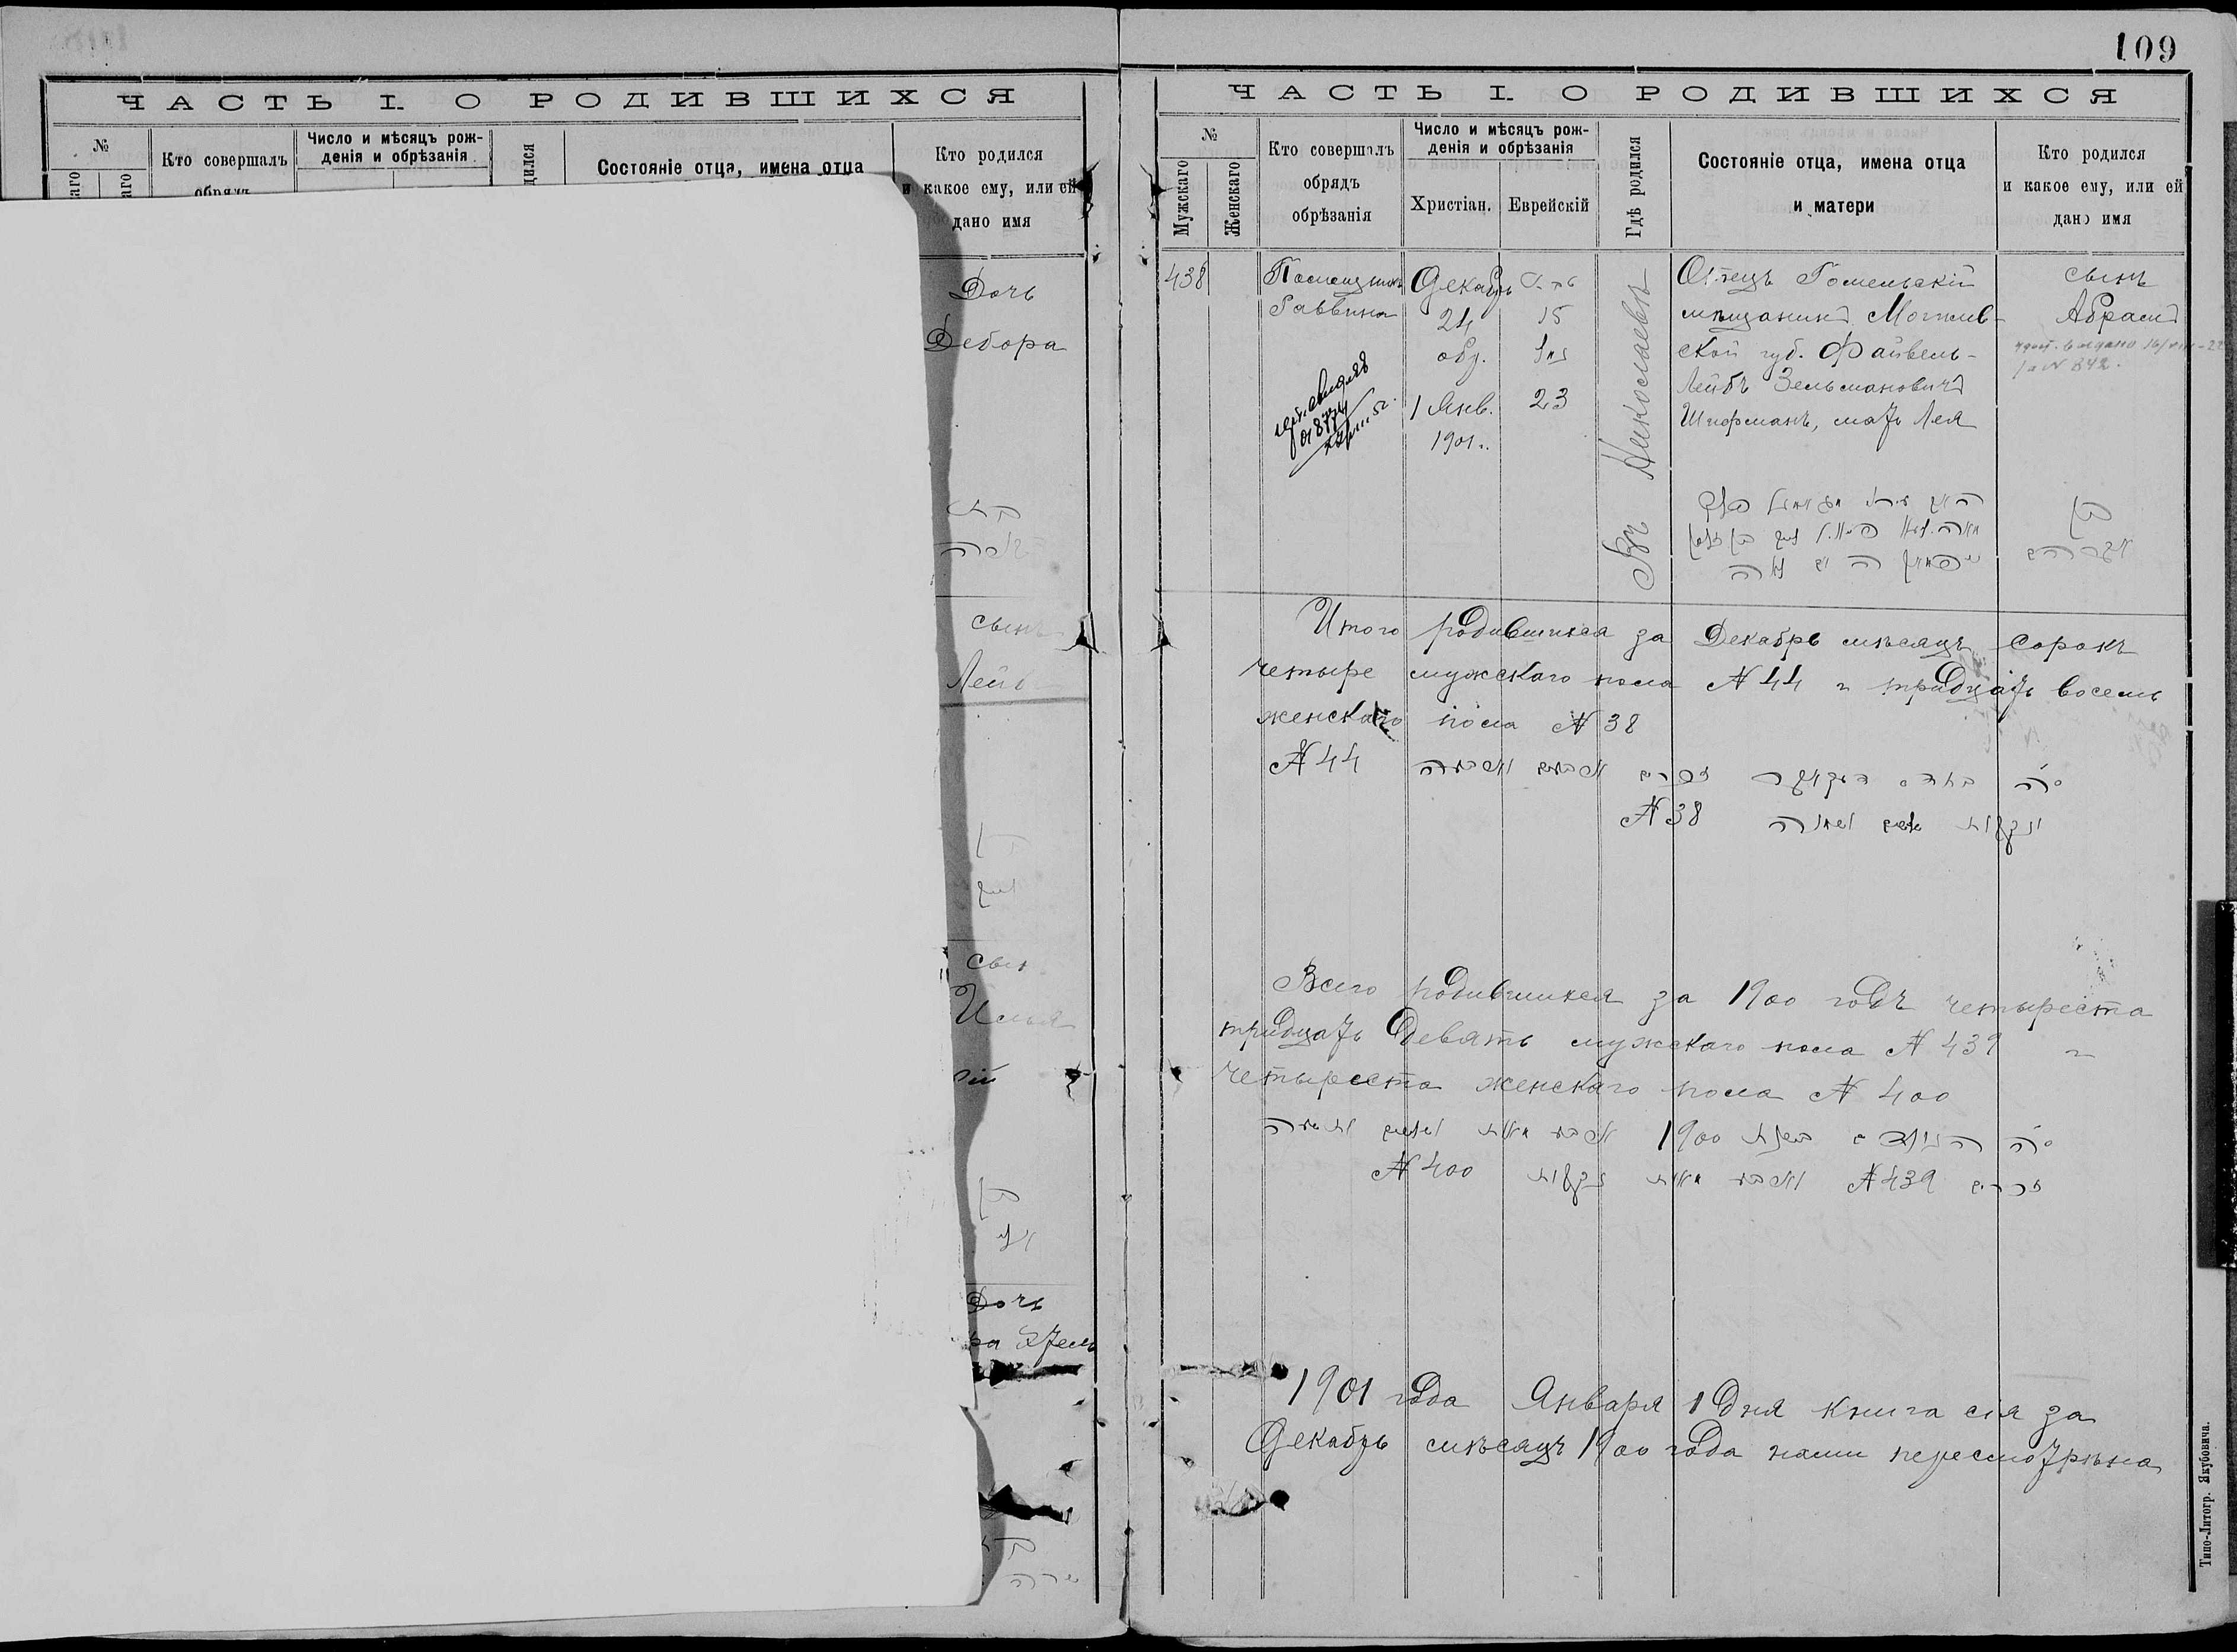 ЧАСТЬ I. О РОДИВШИХСЯ
№
Кто совершалъ
обрядъ
Число и мѣсяцъ рож-
денія и обрѣзанія
Состояніе отца, имена отца
Кто родился
и какое ему, или ей
дано имя
Дочь
Дебора
сынъ
Лейб
сын
Илья
בן
Дочь
109
ЧАСТЬ I. О РОДИВШИХСЯ
№
Мужскаго
Женскаго
Кто совершалъ
обрядъ
обрѣзанія
Число и мѣсяцъ рож-
денія и обрѣзанія
Христіан.
Еврейскій
Гдѣ родился
Состояніе отца, имена отца
и матери
Кто родился
и какое ему, или ей
дано имя
438
Помощникъ
Раввина
Декабрь
24
обр.
1 Янв.
1901 г.
טבת
15
23
Въ Николаевѣ
Отецъ Гомельскій
мѣщанинъ Могилев-
ской губ. Файвель-
Лейбъ Зельмановичъ
Шифрманъ, мать Лея
сынъ
Абрамъ
בן
אברהם
Итого родившихся за Декабрь мѣсяцъ сорокъ
четыре мужскаго пола № 44 и тридцать восемь
женскаго пола № 38
ס״ה בחודש דעקאבר זכרים ארבעים וארבעה № 44
ונקבות שלשים ושמונה № 38
Всего родившихся за 1900 годъ четыреста
тридцать девять мужскаго пола № 439 и
четыреста женскаго пола № 400
ס״ה הנולדים בשנת 1900 ארבע מאות ושלשים ותשעה
זכרים № 439 וארבע מאות נקבות № 400
1901 года Января 1 дня книга сія за
Декабрь мѣсяцъ 1900 года нами пересмотрѣна
Типо-Литогр. Якубовича.